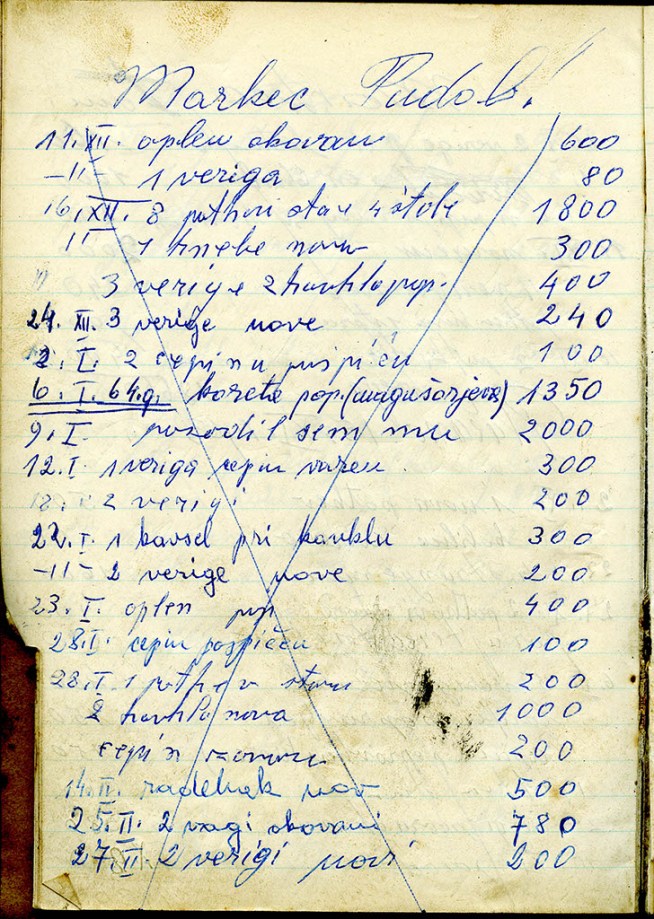 Markec Pudob.
11. XII. oplen okovan 600
-11- 1 veriga 80
16. XII. 8 pothov stare 1800
11 1 knebe nov 300
11 3 verige 2 havkla pop. 400
24. XII. 3 verige nove 240
2. I. 2 cepina pospičen 100
6. I. 64. g. korete pop. 1350
9. I. posodil sem mu 2000
12. I. 1 veriga cepin 300
18. 2 verigi 200
22. I. 1 kavsel pri havklu 300
-11- 2 verige nove 200
23. I. oplen pop 400
28. I. cepin pospičen 100
28. I. 1 200
2 havkla nova 1000
cepin 200
14. II. nov 500
25. II. 2 vagi okovani 780
27. II. 2 verigi novi 200